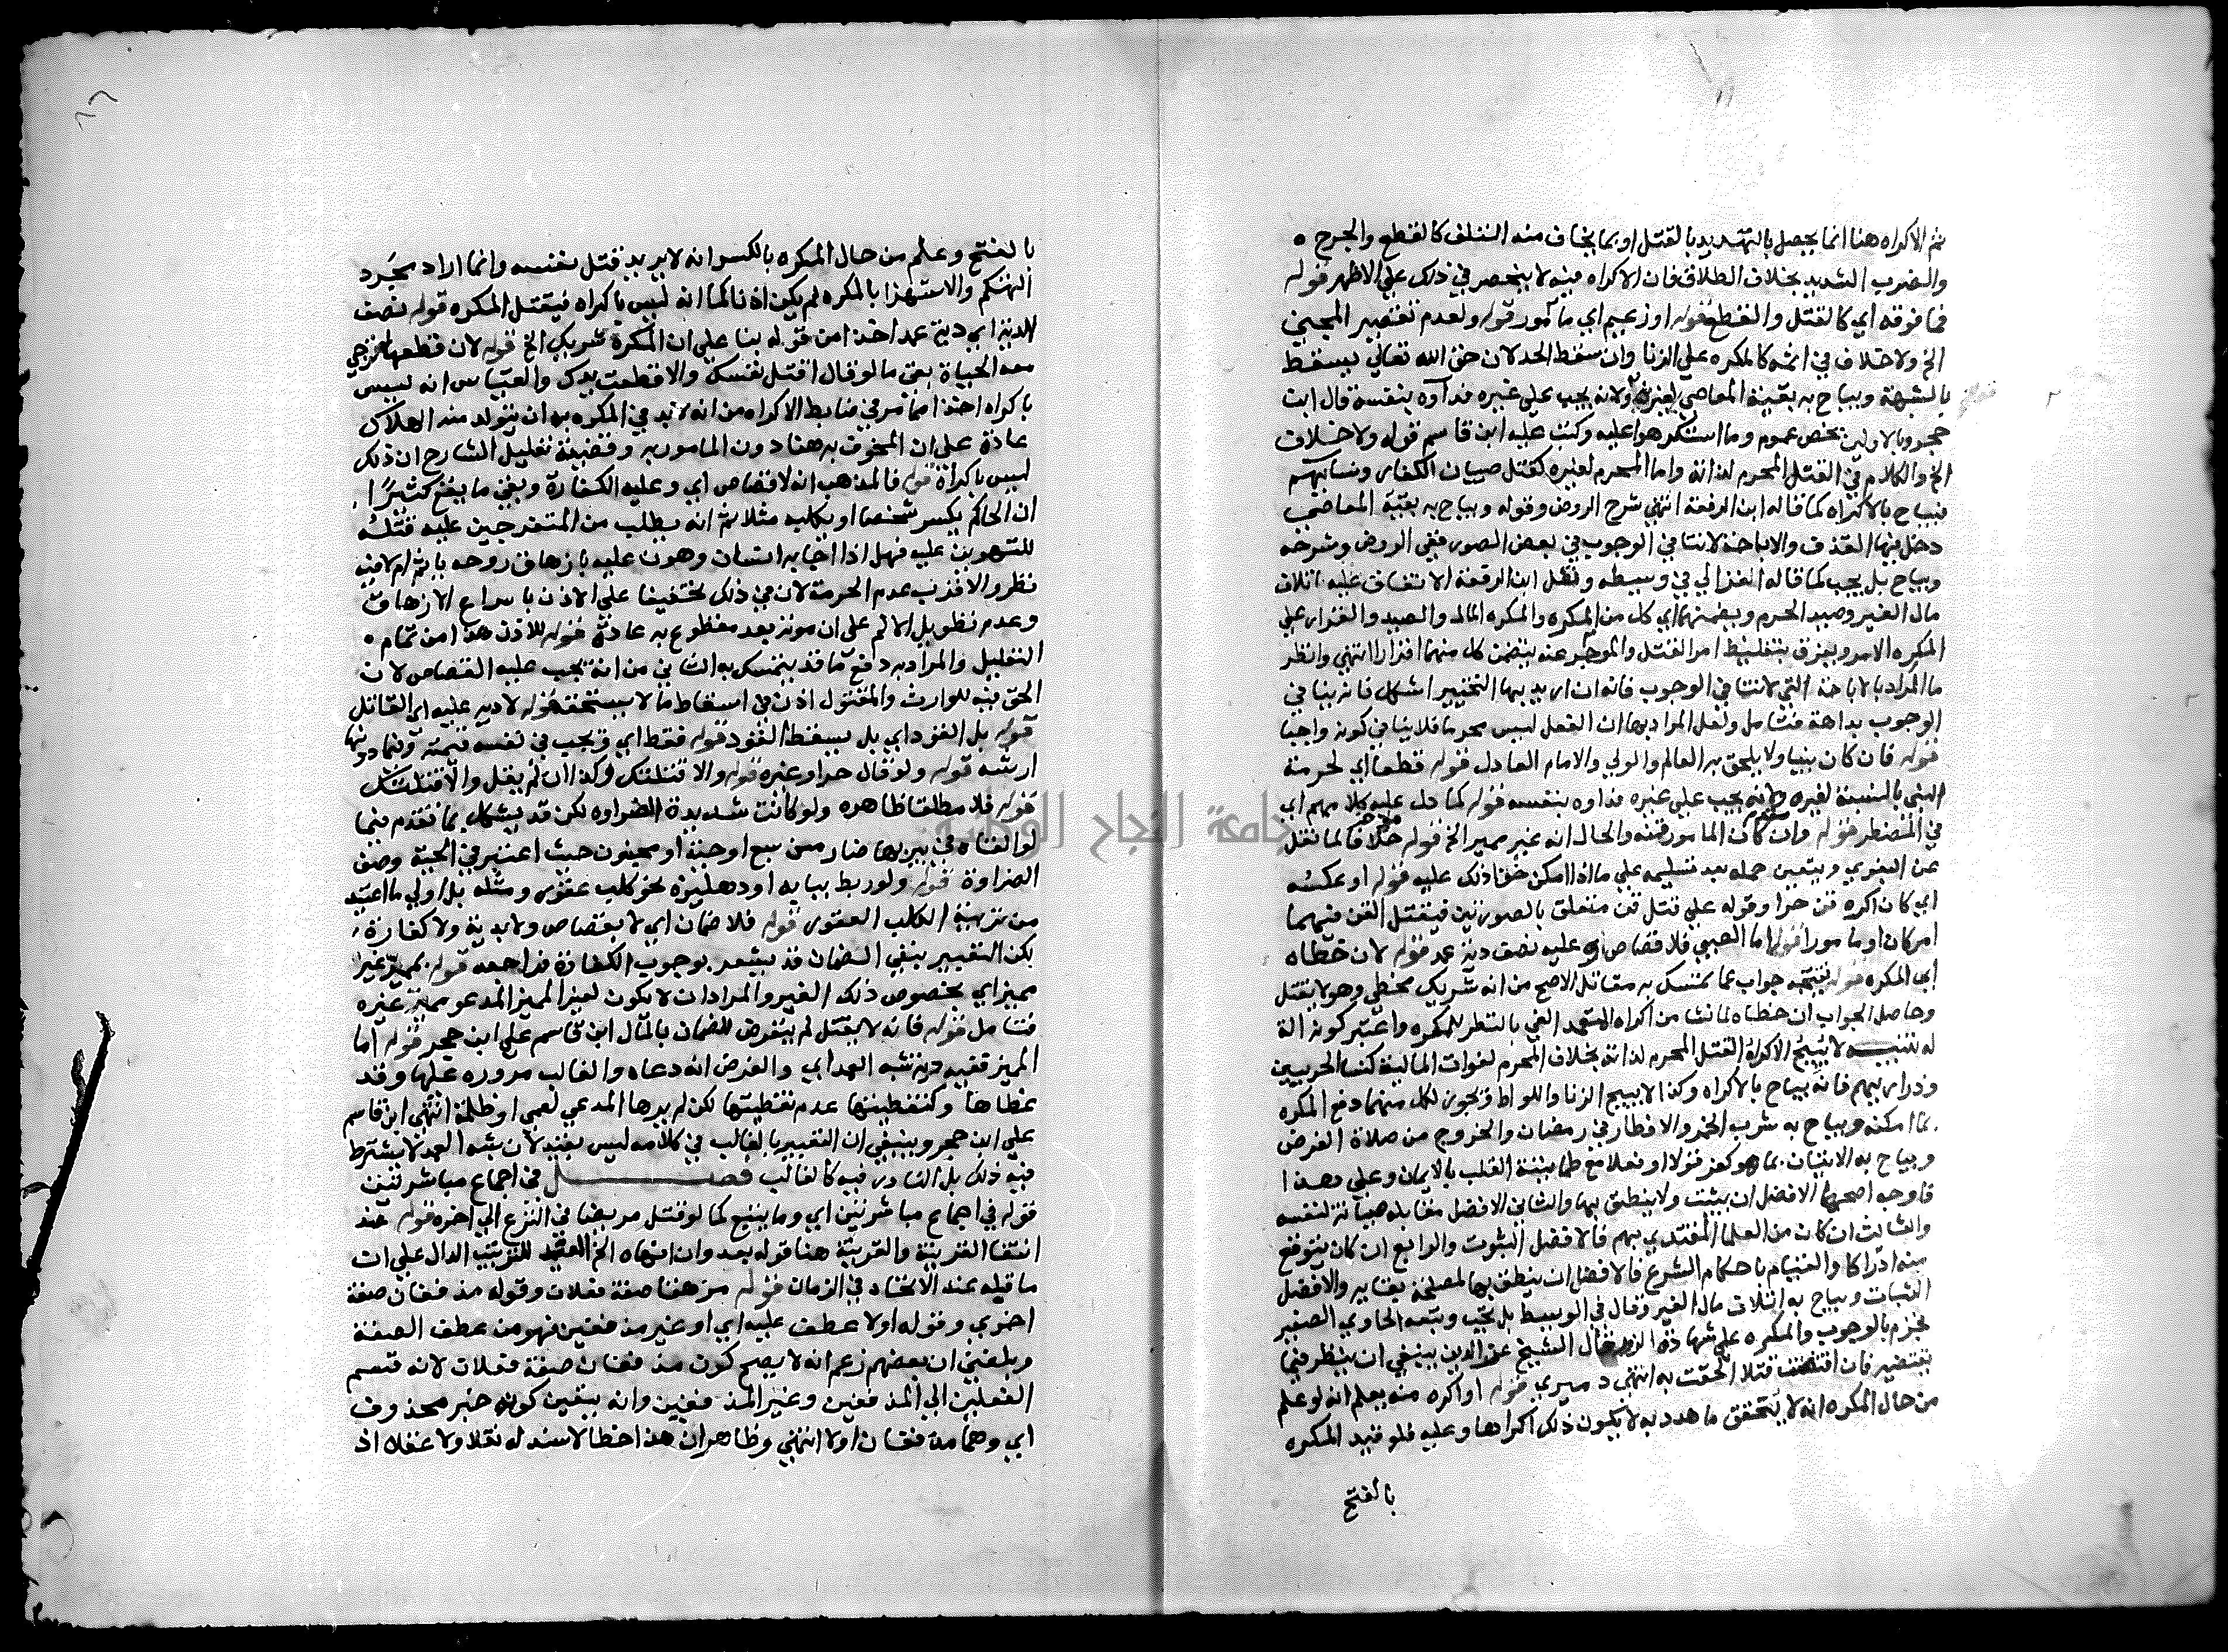 ثم الاكراه هنا انما يحصل بالتهديد بالقتل او بما يخاف منه التلف كالقطع والجرح
والضرب الشديد بخلاف الطلاق فان الاكراه فيه لا ينحصر في ذلك علي الاظهر قوله
فما فوقه اي كالقتل والقطع قوله او زعيم اي مأمور قوله ولعدم تقصير المجني
الخ ولا خلاف في اثمه كالمكره علي الزنا وان سقط الحد لان حق الله تعالي يسقط
بالشبهة ويباح به بقية المعاصي لغيره ولانه يجب علي غيره فداؤه بنفسه قال ابن
حجر وبالاولين يخص عموم وما استكرهوا عليه وكتب عليه ابن قاسم قوله ولا خلاف
الخ والكلام في القتل المحرم لذاته واما المحرم لغيره كقتل صبيان الكفار ونسائهم
فيباح بالاكراه كما قاله ابن الرفعة انتهي شرح الروض وقوله ويباح به بقية المعاصي
دخل فيها القذف والاباحة لا تنافي الوجوب في بعض الصور ففي الروض وشرحه
ويباح بل يجب كما قاله الغزالي في وسيطه ونقل ابن الرفعة الاتفاق عليه اتلاف
مال الغير وصيد الحرم ويضمنهما اي كل من المكره والمكره المال والصيد والقرار علي
المكره الامر ويفرق بتغليظ امر القتل عنه بتضمن كل منهما افرارا انتهي وانظر
ما المراد بالاباحة التي لا تنافي الوجوب فانه ان اريد بها التخيير اشكل فانه ينافي
الوجوب بداهة فتامل ولعل المراد بها ان الفعل ليس محرما فلا ينافي كونه واجبا
قوله فان كان نبيا ولا يلحق به العالم والولي والامام العادل قوله قطعا اي لحرمة
النبي بالنسبة لغيره وانه يجب علي غيره فداوه بنفسه قوله كما دل عليه كلامهم اي
في المضطر قوله وان كان المامور قنه والحال انه غير مميز الخ قوله خلافا لما نقل
عن البغوي ويتعين حمله بعد تسليمه علي ما اذا امكن خفا ذلك عليه قوله او عكسه
اي كان اكره قن حرا وقوله علي قتل قن متعلق بالصورتين فيقتل القن فيهما
امر كان او مامورا قوله اما الصبي فلا قصاص عليه نصف دية عمد قوله لان خطاه
اي المكره قوله نتيجة جواب عما تمسك به مقابل الاصح من انه شريك مخطي وهو لا يقتل
وحاصل الجواب ان خطاه لما نشا من اكراه المتعمد الغي بالنظر للمكره واعتبر كونه الة
له تنبيه لا يبيح الاكراه القتل المحرم لذاته بخلاف المحرم لفوات المالية كنسا الحربيين
وذراريهم فانه يباح بالاكراه وكذا لا يبيح الزنا واللواط ويجوز لكل منهما دفع المكره
بما امكنه ويباح به شرب الخمر والافطار في رمضان والخروج من صلاة الفرض
ويباح به الاتيان بما هو كفر قولا او فعلا مع طمانينة القلب بالايمان وعلي هذا
فاوجه اصحها الافضل ان يثبت ولا ينطق بها والثاني الافضل مقابله صيانة لنفسه
والثالث ان كان من العلما المقتدي بهم فالافضل الثبوت والرابع ان كان يتوقع
منه والقيام باحكام الشرع فالافضل ان ينطق بها لمصلحة بقايه والافضل
الثبات ويباح به اتلاف مال الغير وقال في الوسيط بل يجب وتبعه الحاوي الصغير
بجزم بالوجوب والمكره علي شهادة الزور قال الشيخ عز الدين ينبغي ان ينظر فيما
تقتضيه فان اقتضت قتلا الحقت به انتهي دميري قوله او اكره منه يعلم انه لو علم
من حال المكره انه لا يتحقق ما هدد به لا يكون ذلك اكراها وعليه فلو قيد المكره
بالفتح
بالفتح وعلم من حال المكره بالكسر انه لا يريد قتل نفسه وانما اراد مجرد
التهكم والاستهزا بالمكره لم يكن اذنا كما انه ليس باكراه فيقتل المكره قوله نصف
الدية اي دية عمد اخذا من قوله بنا علي ان المكره شريك الخ قوله لان قطعها ترجي
معه الحياة بقي ما لو قال اقتل نفسك والا قطعت يدك والقياس انه ليس
باكراه اخذا مما مر في ضابط الاكراه من انه لا بد في المكره به ان يتولد منه الهلاك
عادة علي ان المخوف به هنا دون المامور به وقضية تعليل الشارح ان ذلك
ليس باكراه قوله فالمذهب انه لا قصاص اي وعليه الكفارة وبقي ما يقع كثيرا
ان الحاكم يكسر شخصا او يكلبه مثلا ثم انه يطلب من المتفرجين عليه قتله
للتهوين عليه فهل اذا اجابه انسان وهون عليه بازهاق روحه ياثم ام لا فيه
نظر والاقرب عدم الحرمة لان في ذلك تخفيفا علي الاذن باسراع الازهاق
وعدم تطويل الالم علي ان موته بعد مقطوع به عادة قوله للاذن هذا من تمام
التعليل والمراد به دفع ما قد يتمسك به الثاني من انه يجب عليه القصاص لان
الحق فيه للوارث والمقتول اذن في اسقاط ما لا يستحقه قوله لا دية عليه اي القاتل
قوله بل القود اي بل يسقط القود قوله فقط اي ويجب في نفسه قيمته وفيما دونها
ارشه قوله ولو قال حر او غيره قوله والا قتلتك وكذا ان لم يقل والا قتلتك
قوله فلا مطلقا ظاهره ولو كانت شديدة الضراوه لكن قد يشكل بما تقدم فيما
لو القاه في بير بها ضار من سبع او حية او مجنون حيث اعتبر في الحية وصف
الضراوة قوله ولو ربط ببابه او دهليزه نحو كلب عقور ومثله بل اولي ما اعتيد
من تربية الكلب العقور قوله فلا ضمان اي لا بقصاص ولا بدية ولا كفارة
لكن التعبير بنفي الضمان قد يشعر بوجوب الكفارة فراجعه قوله مميز غير
مميز اي بخصوص ذلك الغير والمراد ان لا يكون لغير المميز المدعو مميز غيره
فتامل قوله فانه لا يقتل لم يتعرض للضمان بالمال ابن قاسم علي ابن حجر قوله اما
المميز ففيه دية شبه العمد اي والفرض انه دعاه والغالب مروره عليها وقد
غطاها وكتغطيتها عدم تغطيتها لكن لم يرها المدعي لعمي او ظلمة انتهي ابن قاسم
علي ابن حجر وينبغي ان التعبير بالغالب في كلامه ليس بقيد لان شبه العمد لا يشترط
فيه ذلك بل النادر فيه كالغالب فصل في اجماع مباشرتين
قوله في اجماع مباشرتين اي وما يتبع كما لو قتل مريضا في النزع الي اخره قوله عند
انتفا القرينة والقرينة هنا قوله بعد وان انهاه الخ للترتيب الدال علي ان
ما قبله عند الاتحاد في الزمان قوله مزهقا صفة فعلان وقوله مذففان صفة
اخري وقوله اولا عطف عليه اي او غير مذففين فهو من عطف الصفة
وبلغني ان بعضهم زعم انه لا يصح كون مذففان صفة فعلان لانه قسم
الفعلين الي المذففين وغير المذففين وانه يتعين كونه خبر محذوف
اي وهما مذففان اولا انتهي وظاهر ان هذا خطا لا سند له نقلا ولا عقلا اذ
جامعة النجاح الوطنية